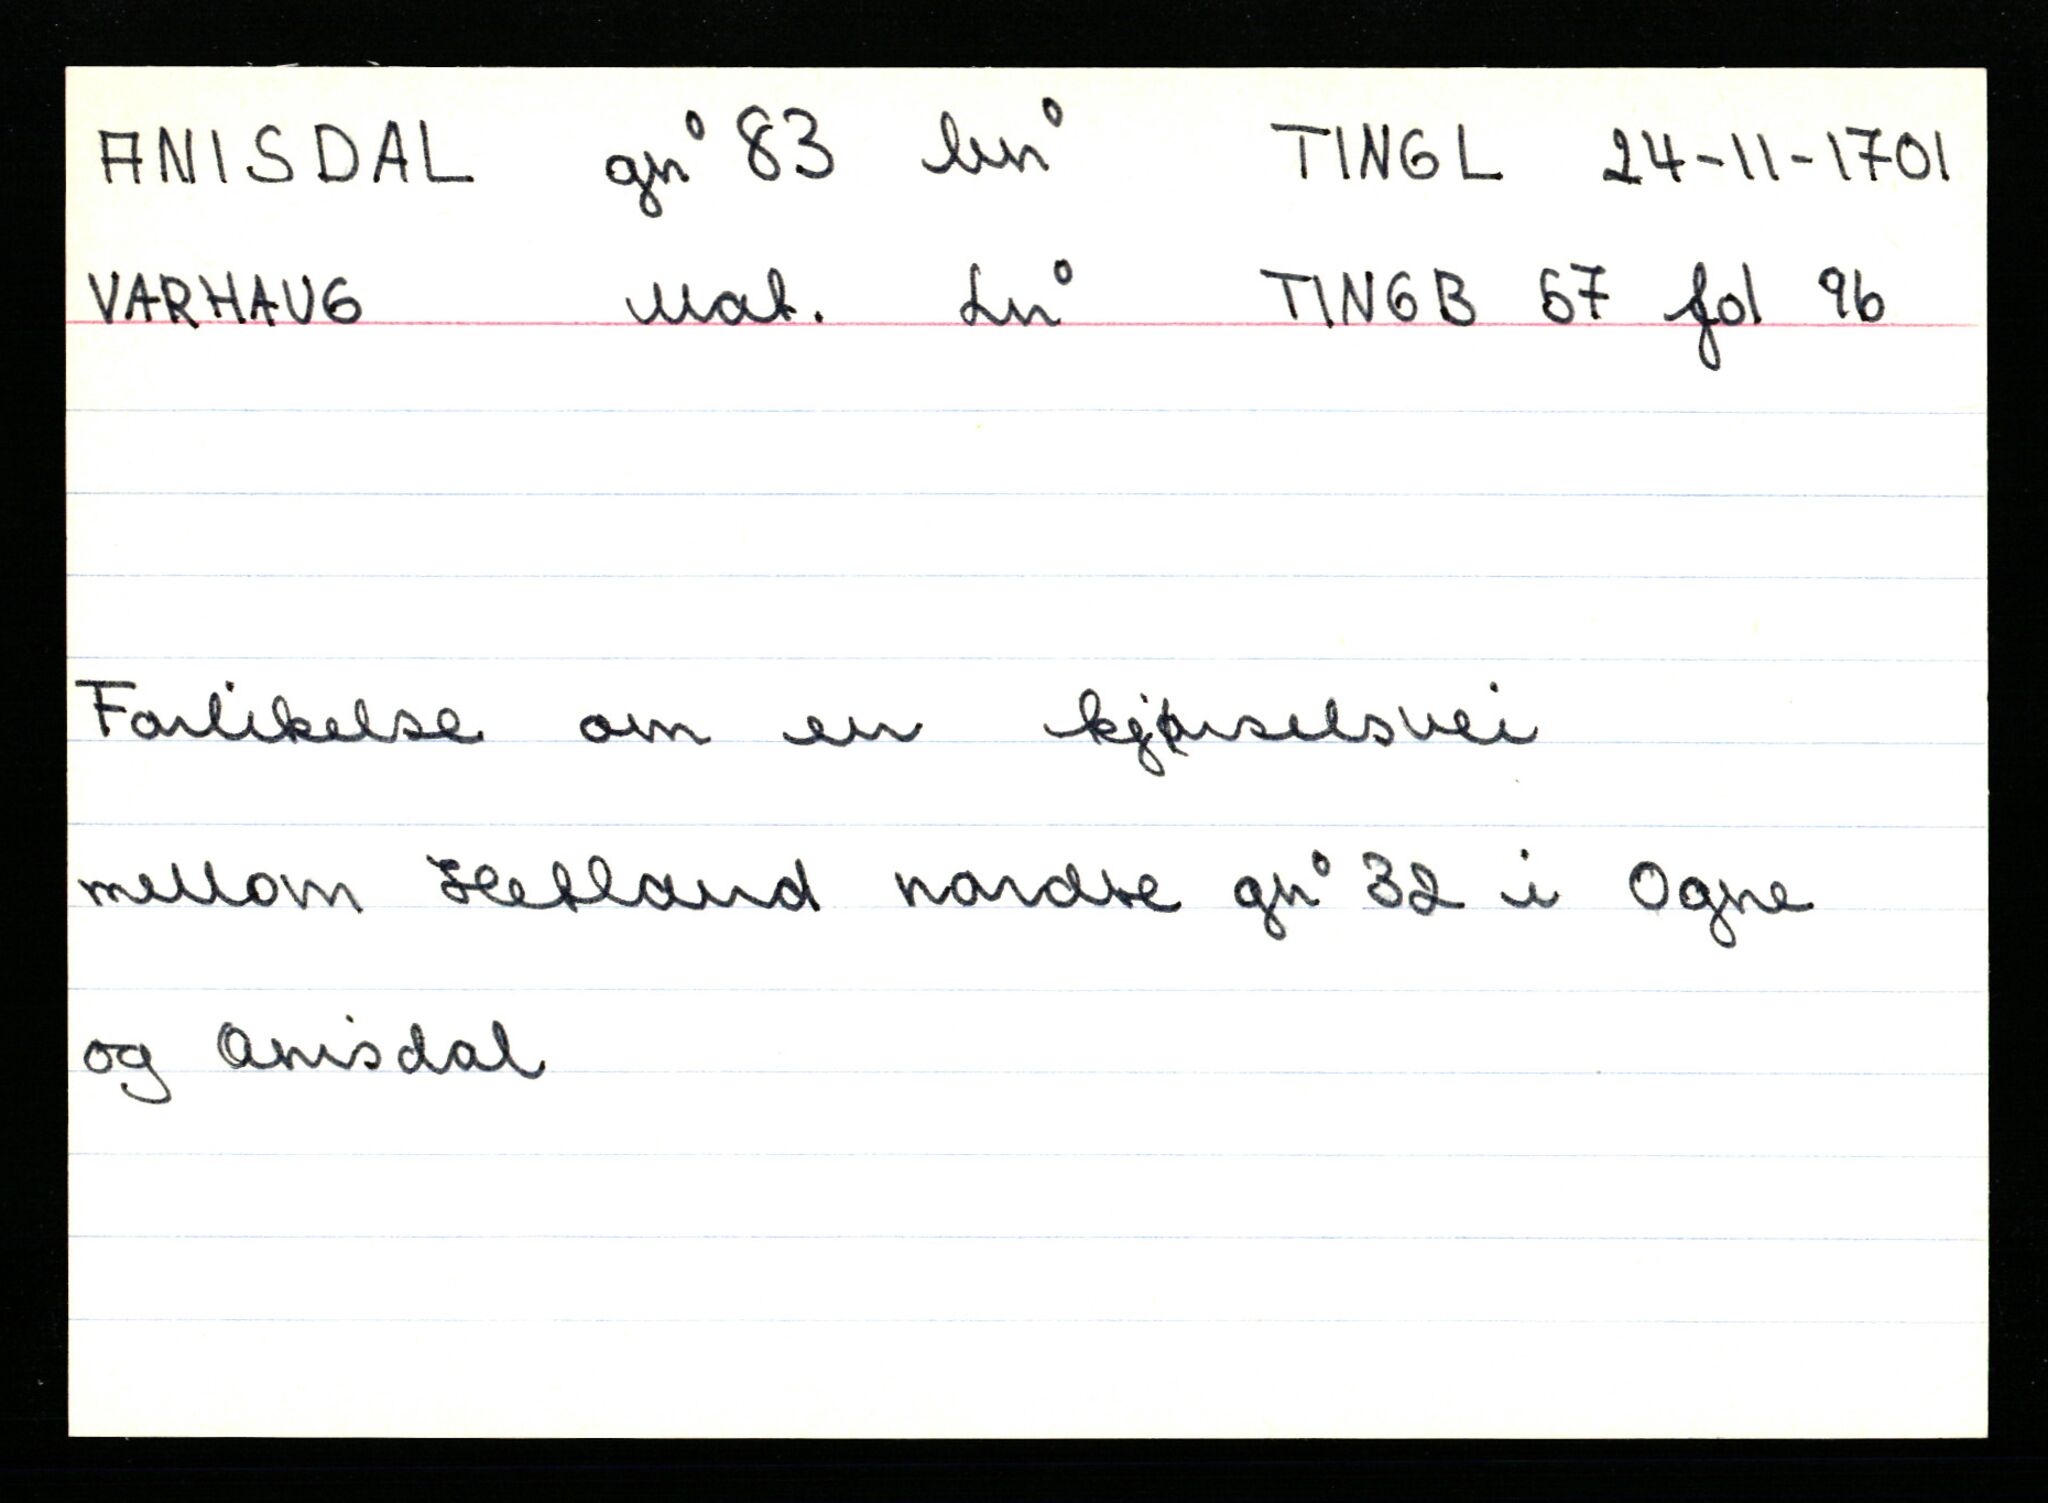 ANISDAL gn° 83 bn° TINGL 24-11-1701
VARHAUG Mat. Ln° TINGB 57 fol 9b
Forlikelse om en kjørselsvei
mellom Hetland nordre gn° 32 i Ogne
og Anisdal